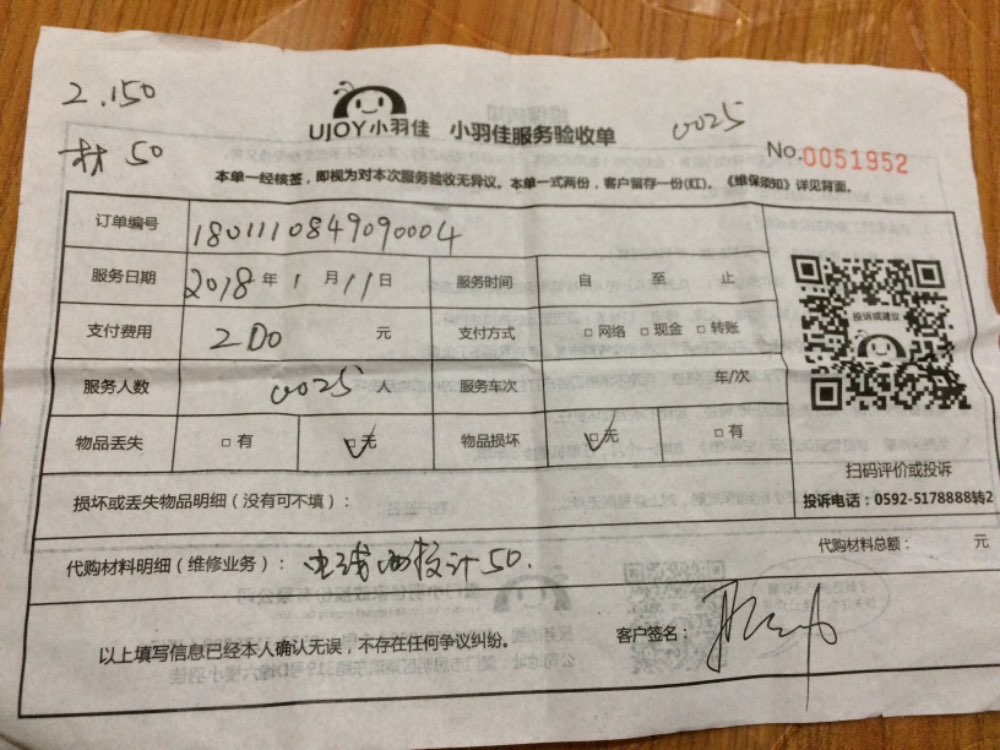 2.150
材 50
UJOY小羽佳 小羽佳服务验收单
0025
No.0051952
本单一经核签，即视为对本次服务验收无异议。本单一式两份，客户留存一份(红)。《维保须知》详见背面。
订单编号 1801110849090004
服务日期 2018 年 1 月 11 日 服务时间 自 至 止
支付费用 200 元 支付方式 □ 网络 □ 现金 □ 转账
服务人数 0025 人 服务车次 车/次
物品丢失 □ 有 □ 无 物品损坏 □ 无 □ 有
投诉或建议
扫码评价或投诉
投诉电话：0592-5178888转2
损坏或丢失物品明细（没有可不填）：
代购材料明细（维修业务）： 50.
代购材料总额： 元
以上填写信息已经本人确认无误，不存在任何争议纠纷。
客户签名：